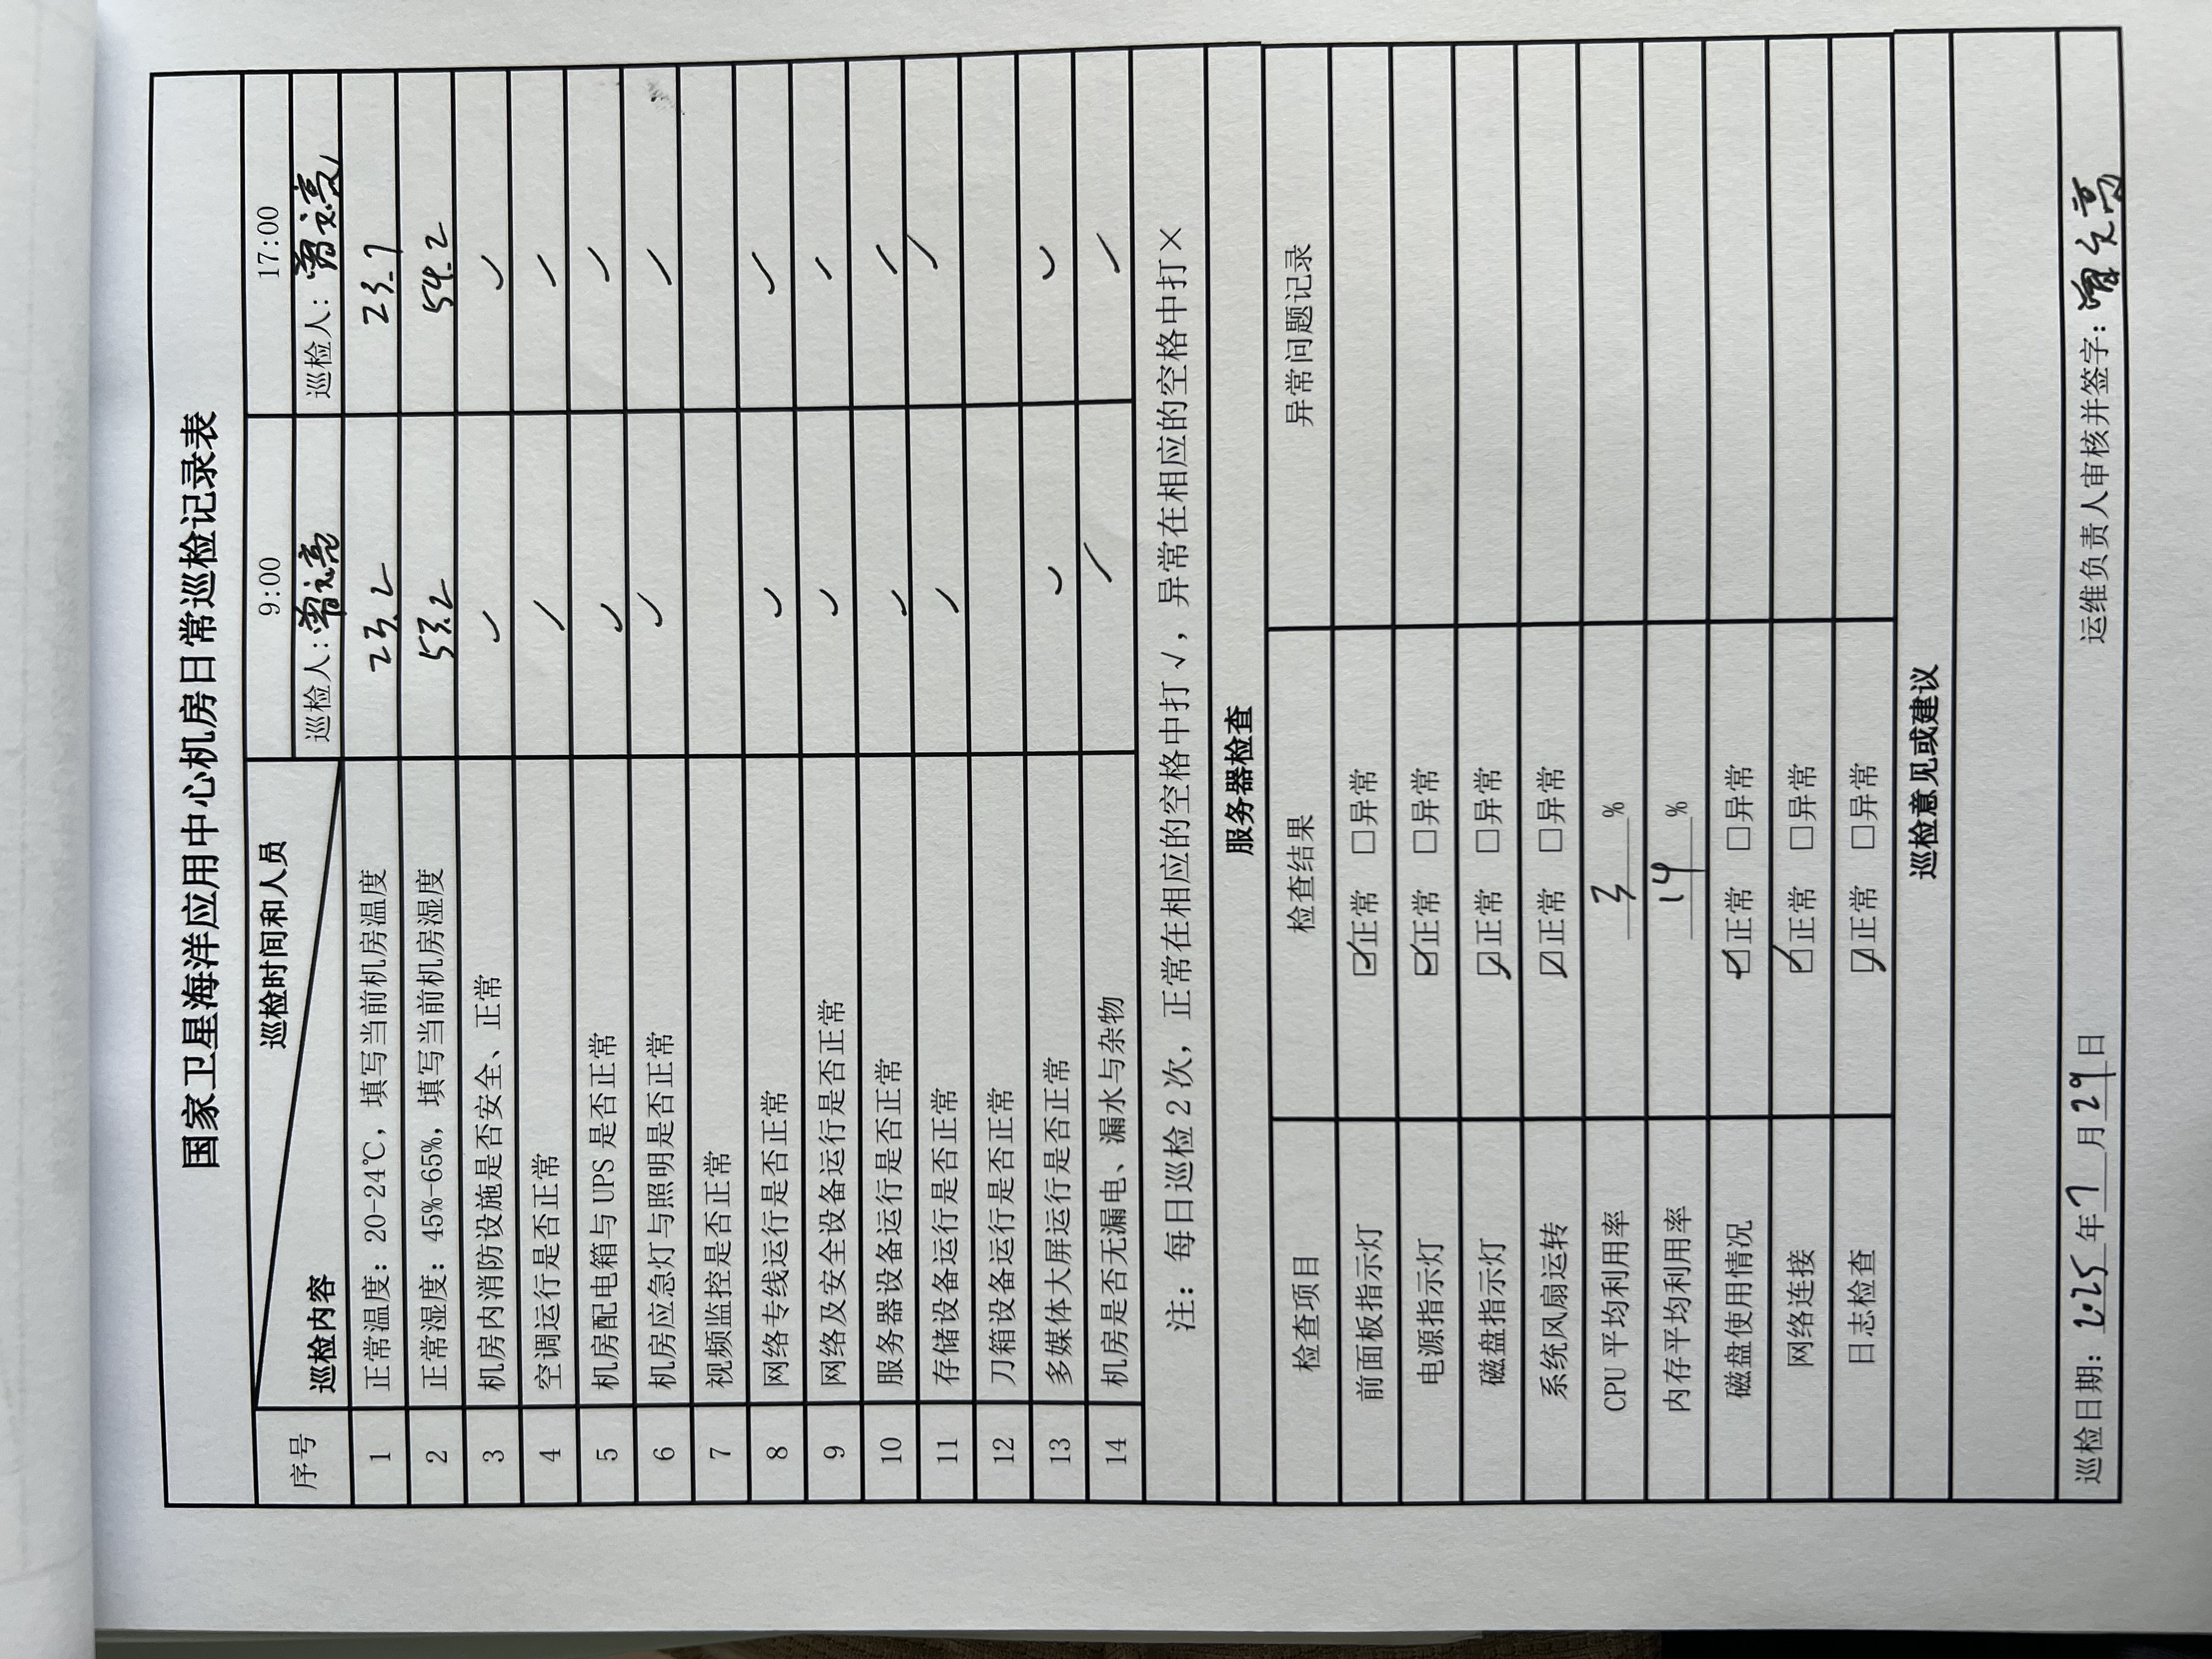 国家卫星海洋应用中心机房日常巡检记录表
序号 巡检内容 巡检时间和人员 9:00 17:00
巡检人: 曾文亮 巡检人: 曾文亮
1 正常温度: 20-24℃, 填写当前机房温度 23.2 23.7
2 正常湿度: 45%-65%, 填写当前机房湿度 53.2 54.2
3 机房内消防设施是否安全、正常 ✓ ✓
4 空调运行是否正常 ✓ ✓
5 机房配电箱与 UPS 是否正常 ✓ ✓
6 机房应急灯与照明是否正常 ✓ ✓
7 视频监控是否正常
8 网络专线运行是否正常 ✓ ✓
9 网络及安全设备运行是否正常 ✓ ✓
10 服务器设备运行是否正常 ✓ ✓
11 存储设备运行是否正常 ✓ ✓
12 刀箱设备运行是否正常
13 多媒体大屏运行是否正常 ✓ ✓
14 机房是否无漏电、漏水与杂物 ✓ ✓
注: 每日巡检 2 次, 正常在相应的空格中打 √, 异常在相应的空格中打×
服务器检查
检查项目 检查结果 异常问题记录
前面板指示灯 ☑正常 □异常
电源指示灯 ☑正常 □异常
磁盘指示灯 ☑正常 □异常
系统风扇运转 ☑正常 □异常
CPU 平均利用率 3 %
内存平均利用率 14 %
磁盘使用情况 ☑正常 □异常
网络连接 ☑正常 □异常
日志检查 ☑正常 □异常
巡检意见或建议
巡检日期: 2025 年 7 月 29 日 运维负责人审核并签字: 曾文亮